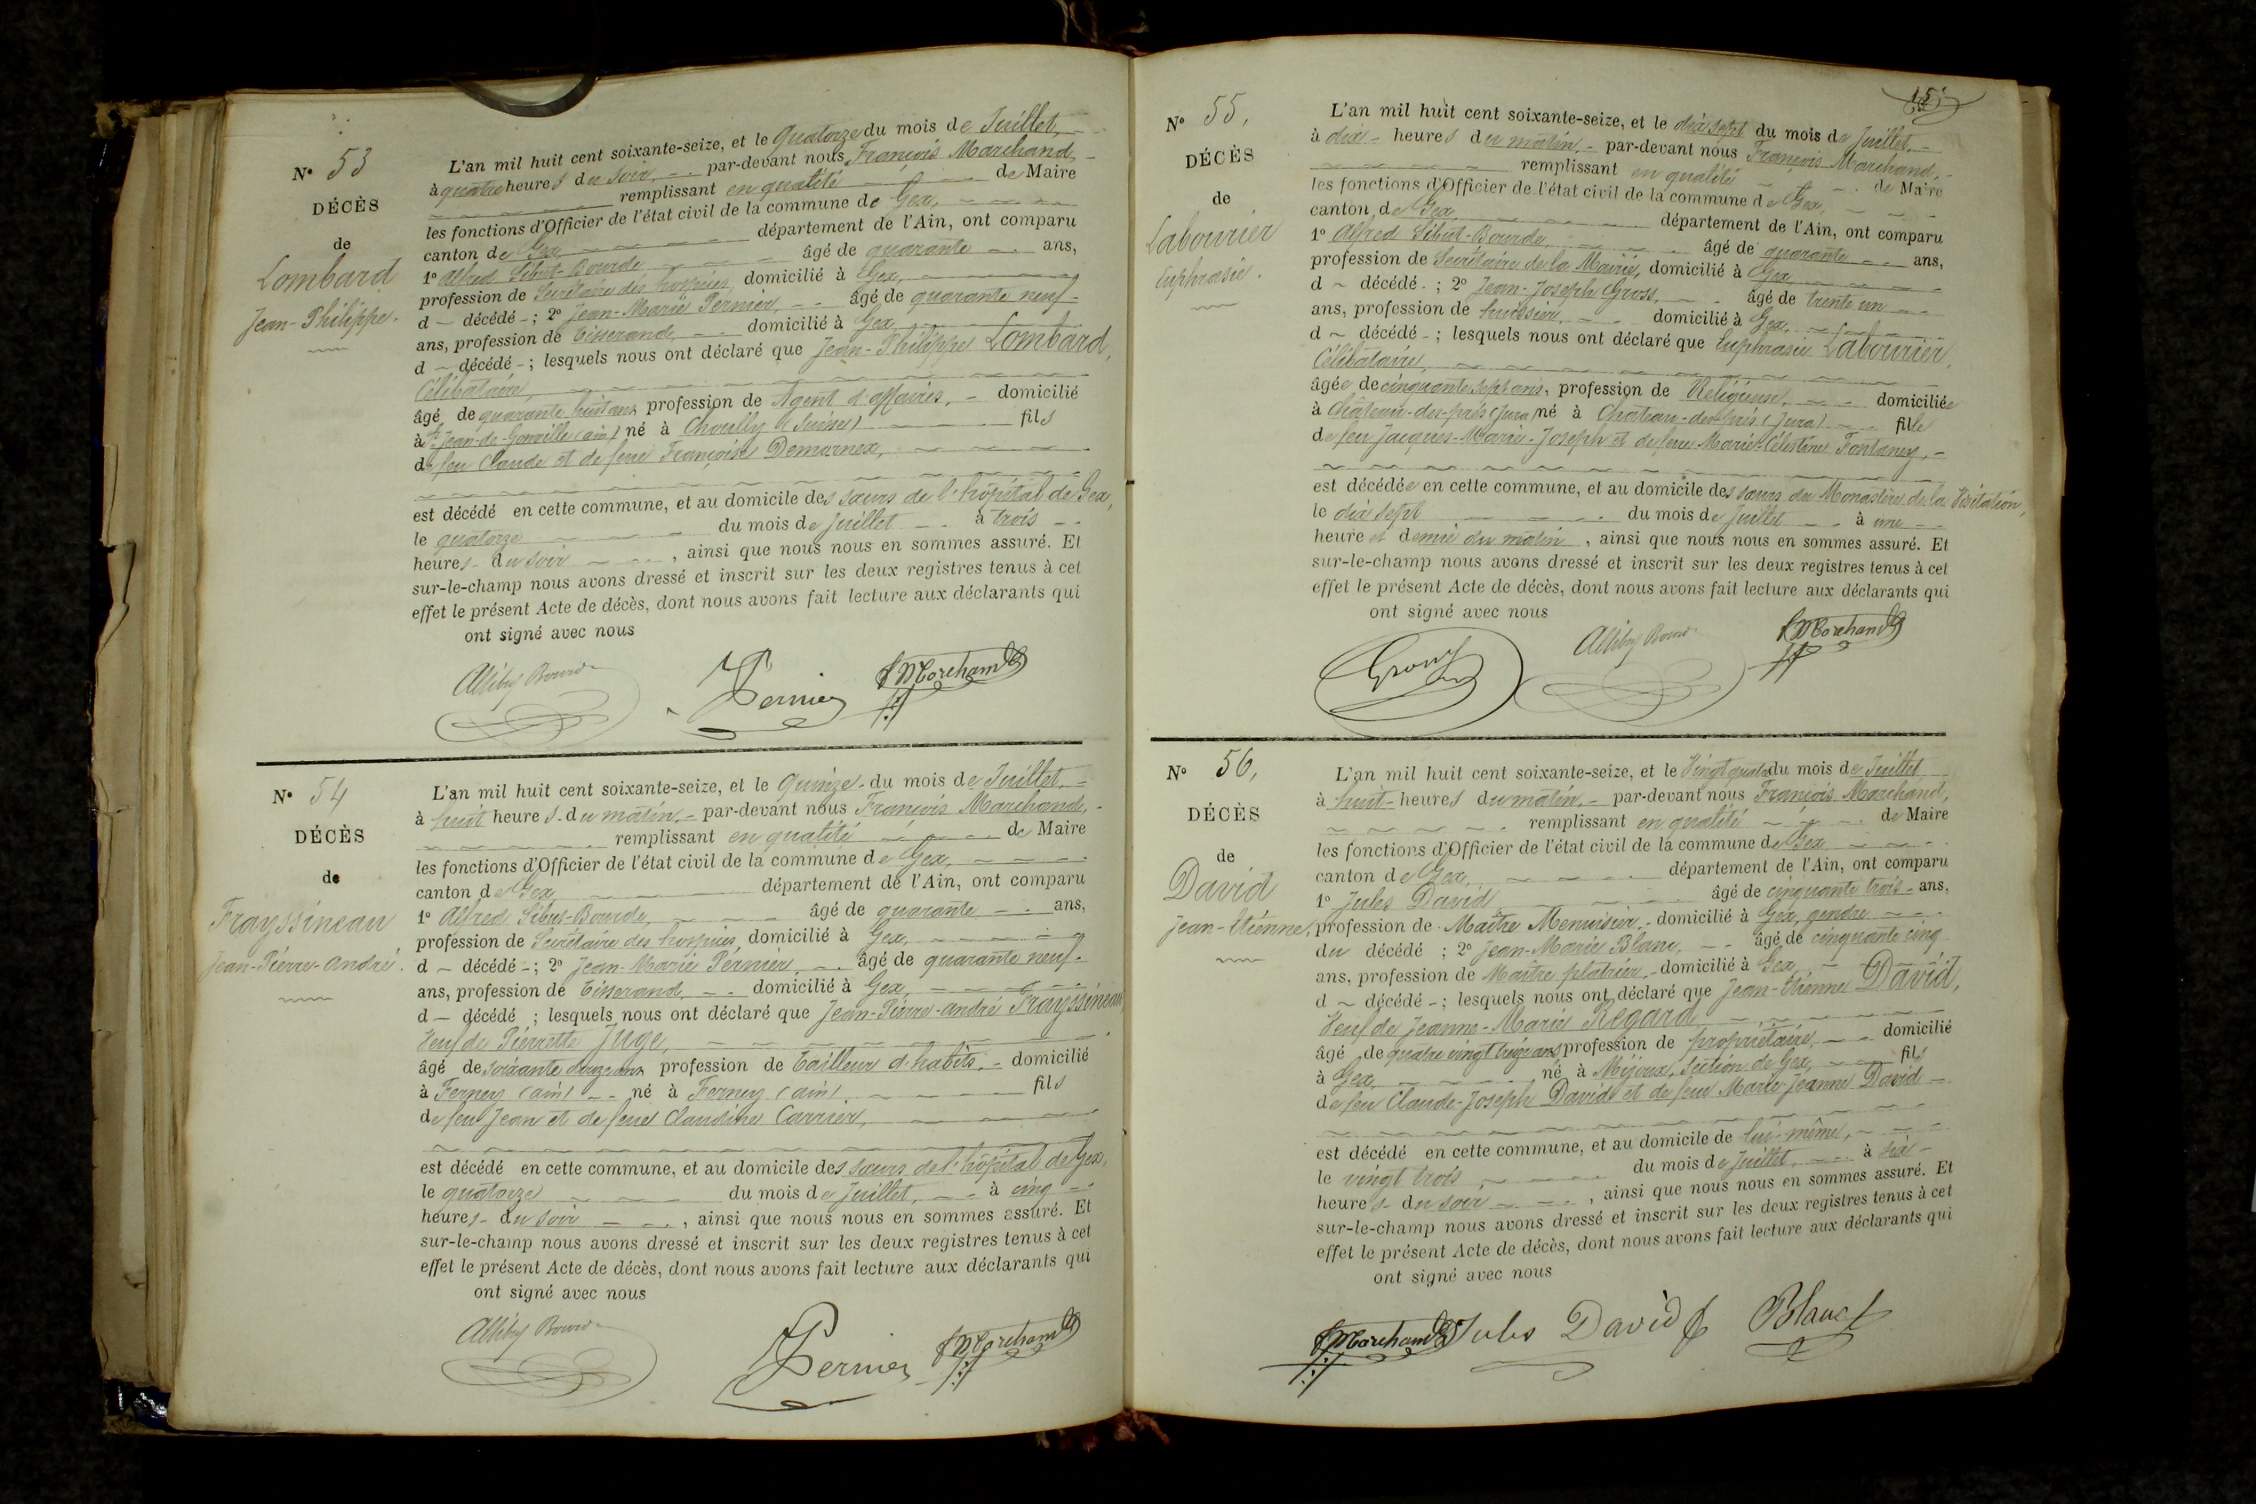 N° 53
DÉCÈS
de
Lombard
Jean-Philippe.
L'an mil huit cent soixante-seize, et le Quatorze du mois de Juillet,
à quatre heures du soir, par-devant nous, François Marchand,
remplissant en qualité de Maire
les fonctions d'Officier de l'état civil de la commune de Gex,
canton de Gex département de l'Ain, ont comparu
1° Alfred Sibut-Bourde, âgé de quarante ans,
profession de Secrétaire des hospices, domicilié à Gex,
d décédé; 2° Jean-Marie Pernier, âgé de quarante neuf
ans, profession de Tisserand, domicilié à Gex,
d décédé; lesquels nous ont déclaré que Jean-Philippe Lombard,
Célibataire,
âgé de quarante huit ans, profession de Agent d'affaires, domicilié
à St Jean-de-Gonville (ain) né à Choully (Suisse) fils
de feu Claude et de feue Françoise Demornex,
est décédé en cette commune, et au domicile des sœurs de l'hôpital de Gex,
le quatorze du mois de Juillet à trois
heures du soir, ainsi que nous nous en sommes assuré. Et
sur-le-champ nous avons dressé et inscrit sur les deux registres tenus à cet
effet le présent Acte de décès, dont nous avons fait lecture aux déclarants qui
ont signé avec nous
Pernier FMarchand
N° 54
DÉCÈS
de
Frayssineau
Jean-Pierre-André.
L'an mil huit cent soixante-seize, et le Quinze du mois de Juillet,
à huit heures du matin, par-devant nous François Marchand,
remplissant en qualité de Maire
les fonctions d'Officier de l'état civil de la commune de Gex,
canton de Gex département de l'Ain, ont comparu
1° Alfred Sibut-Bourde, âgé de quarante ans,
profession de Secrétaire des hospices, domicilié à Gex,
d décédé; 2° Jean-Marie Pernier, âgé de quarante neuf
ans, profession de Tisserand, domicilié à Gex,
d décédé ; lesquels nous ont déclaré que Jean-Pierre-André Frayssineau,
Veuf de Pierrette Juge,
âgé de soixante douze ans, profession de Tailleur d'habits, domicilié
à Ferney (ain) né à Ferney (ain), fils
de feu Jean et de feue Claudine Carrier,
est décédé en cette commune, et au domicile des sœurs de l'hôpital de Gex,
le quatorze du mois de Juillet, à cinq
heures du soir, ainsi que nous nous en sommes assuré. Et
sur-le-champ nous avons dressé et inscrit sur les deux registres tenus à cet
effet le présent Acte de décès, dont nous avons fait lecture aux déclarants qui
ont signé avec nous
Pernier FMarchand
15
N° 55,
DÉCÈS
de
Labourier
Euphrasie.
L'an mil huit cent soixante-seize, et le dix sept du mois de Juillet,
à dix heures du matin, par-devant nous François Marchand,
remplissant en qualité de Maire
les fonctions d'Officier de l'état civil de la commune de Gex,
canton de Gex, département de l'Ain, ont comparu
1° Alfred Sibut-Bourde, âgé de quarante ans,
profession de Secrétaire de la Mairie, domicilié à Gex,
d décédé; 2° Jean-Joseph Gross, âgé de trente un
ans, profession de huissier, domicilié à Gex,
d décédé; lesquels nous ont déclaré que Euphrasie Labourier,
Célibataire,
âgée de cinquante sept ans, profession de Religieuse, domiciliée
à Château-des-prés (Jura) né à Château-des-prés (Jura) fille
de feu Jacques-Marie-Joseph et de feue Marie-Célestine Fontanez,
est décédée en cette commune, et au domicile des sœurs du Monastère de la Visitation,
le dix sept du mois de Juillet à une
heure et demie du matin, ainsi que nous nous en sommes assuré. Et
sur-le-champ nous avons dressé et inscrit sur les deux registres tenus à cet
effet le présent Acte de décès, dont nous avons fait lecture aux déclarants qui
ont signé avec nous
Gross FMarchand
N° 56,
DÉCÈS
de
David
Jean-Etienne,
L'an mil huit cent soixante-seize, et le Vingt quatre du mois de Juillet
à huit heures du matin, par-devant nous François Marchand,
remplissant en qualité de Maire
les fonctions d'Officier de l'état civil de la commune de Gex
canton de Gex, département de l'Ain, ont comparu
1° Jules David âgé de cinquante trois ans,
profession de Maître Menuisier, domicilié à Gex, gendre
du décédé ; 2° Jean-Marie Blanc, âgé de cinquante cinq
ans, profession de Maître plâtrier, domicilié à Gex,
d décédé; lesquels nous ont déclaré que Jean-Etienne David,
Veuf de Jeanne-Marie Regard
âgé de quatre vingt treize ans, profession de propriétaire, domicilié
à Gex, né à Mijoux, Section de Gex, fils
de feu Claude-Joseph David et de feue Marie-Jeanne David
est décédé en cette commune, et au domicile de lui-même,
le vingt trois du mois de Juillet, à six
heures du soir, ainsi que nous nous en sommes assuré. Et
sur-le-champ nous avons dressé et inscrit sur les deux registres tenus à cet
effet le présent Acte de décès, dont nous avons fait lecture aux déclarants qui
ont signé avec nous
FMarchand Jules David Blanc